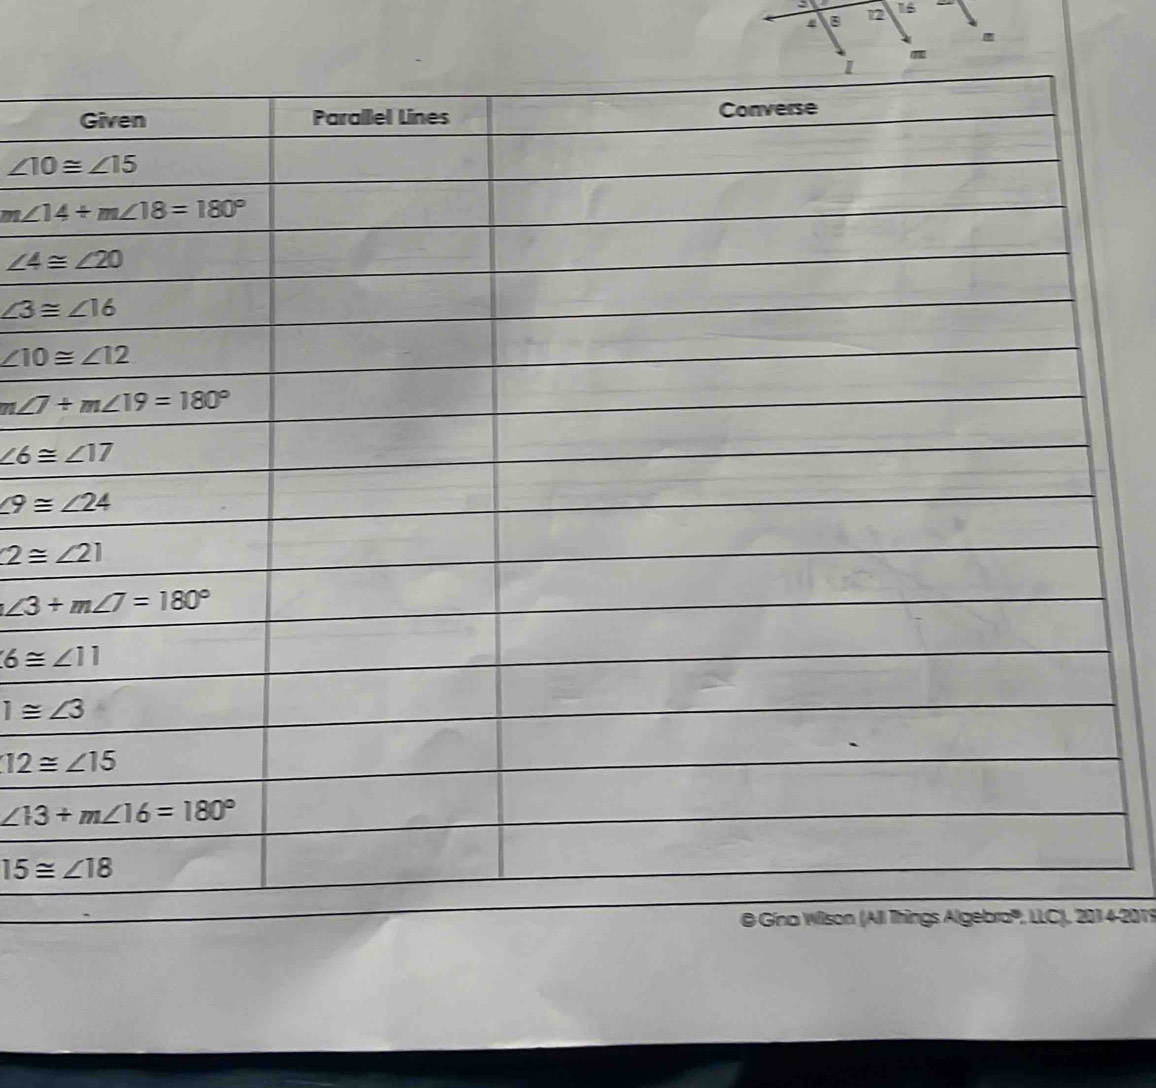 4 8 12 16
l m n
Given Parallel Lines Converse
∠10 ≅ ∠15
m∠14 + m∠18 = 180°
∠4 ≅ ∠20
∠3 ≅ ∠16
∠10 ≅ ∠12
m∠7 + m∠19 = 180°
∠6 ≅ ∠17
∠9 ≅ ∠24
∠2 ≅ ∠21
∠3 + m∠7 = 180°
∠6 ≅ ∠11
1 ≅ ∠3
∠12 ≅ ∠15
∠13 + m∠16 = 180°
15 ≅ ∠18
© Gina Wilson (All Things Algebra®, LLC), 2014-2019